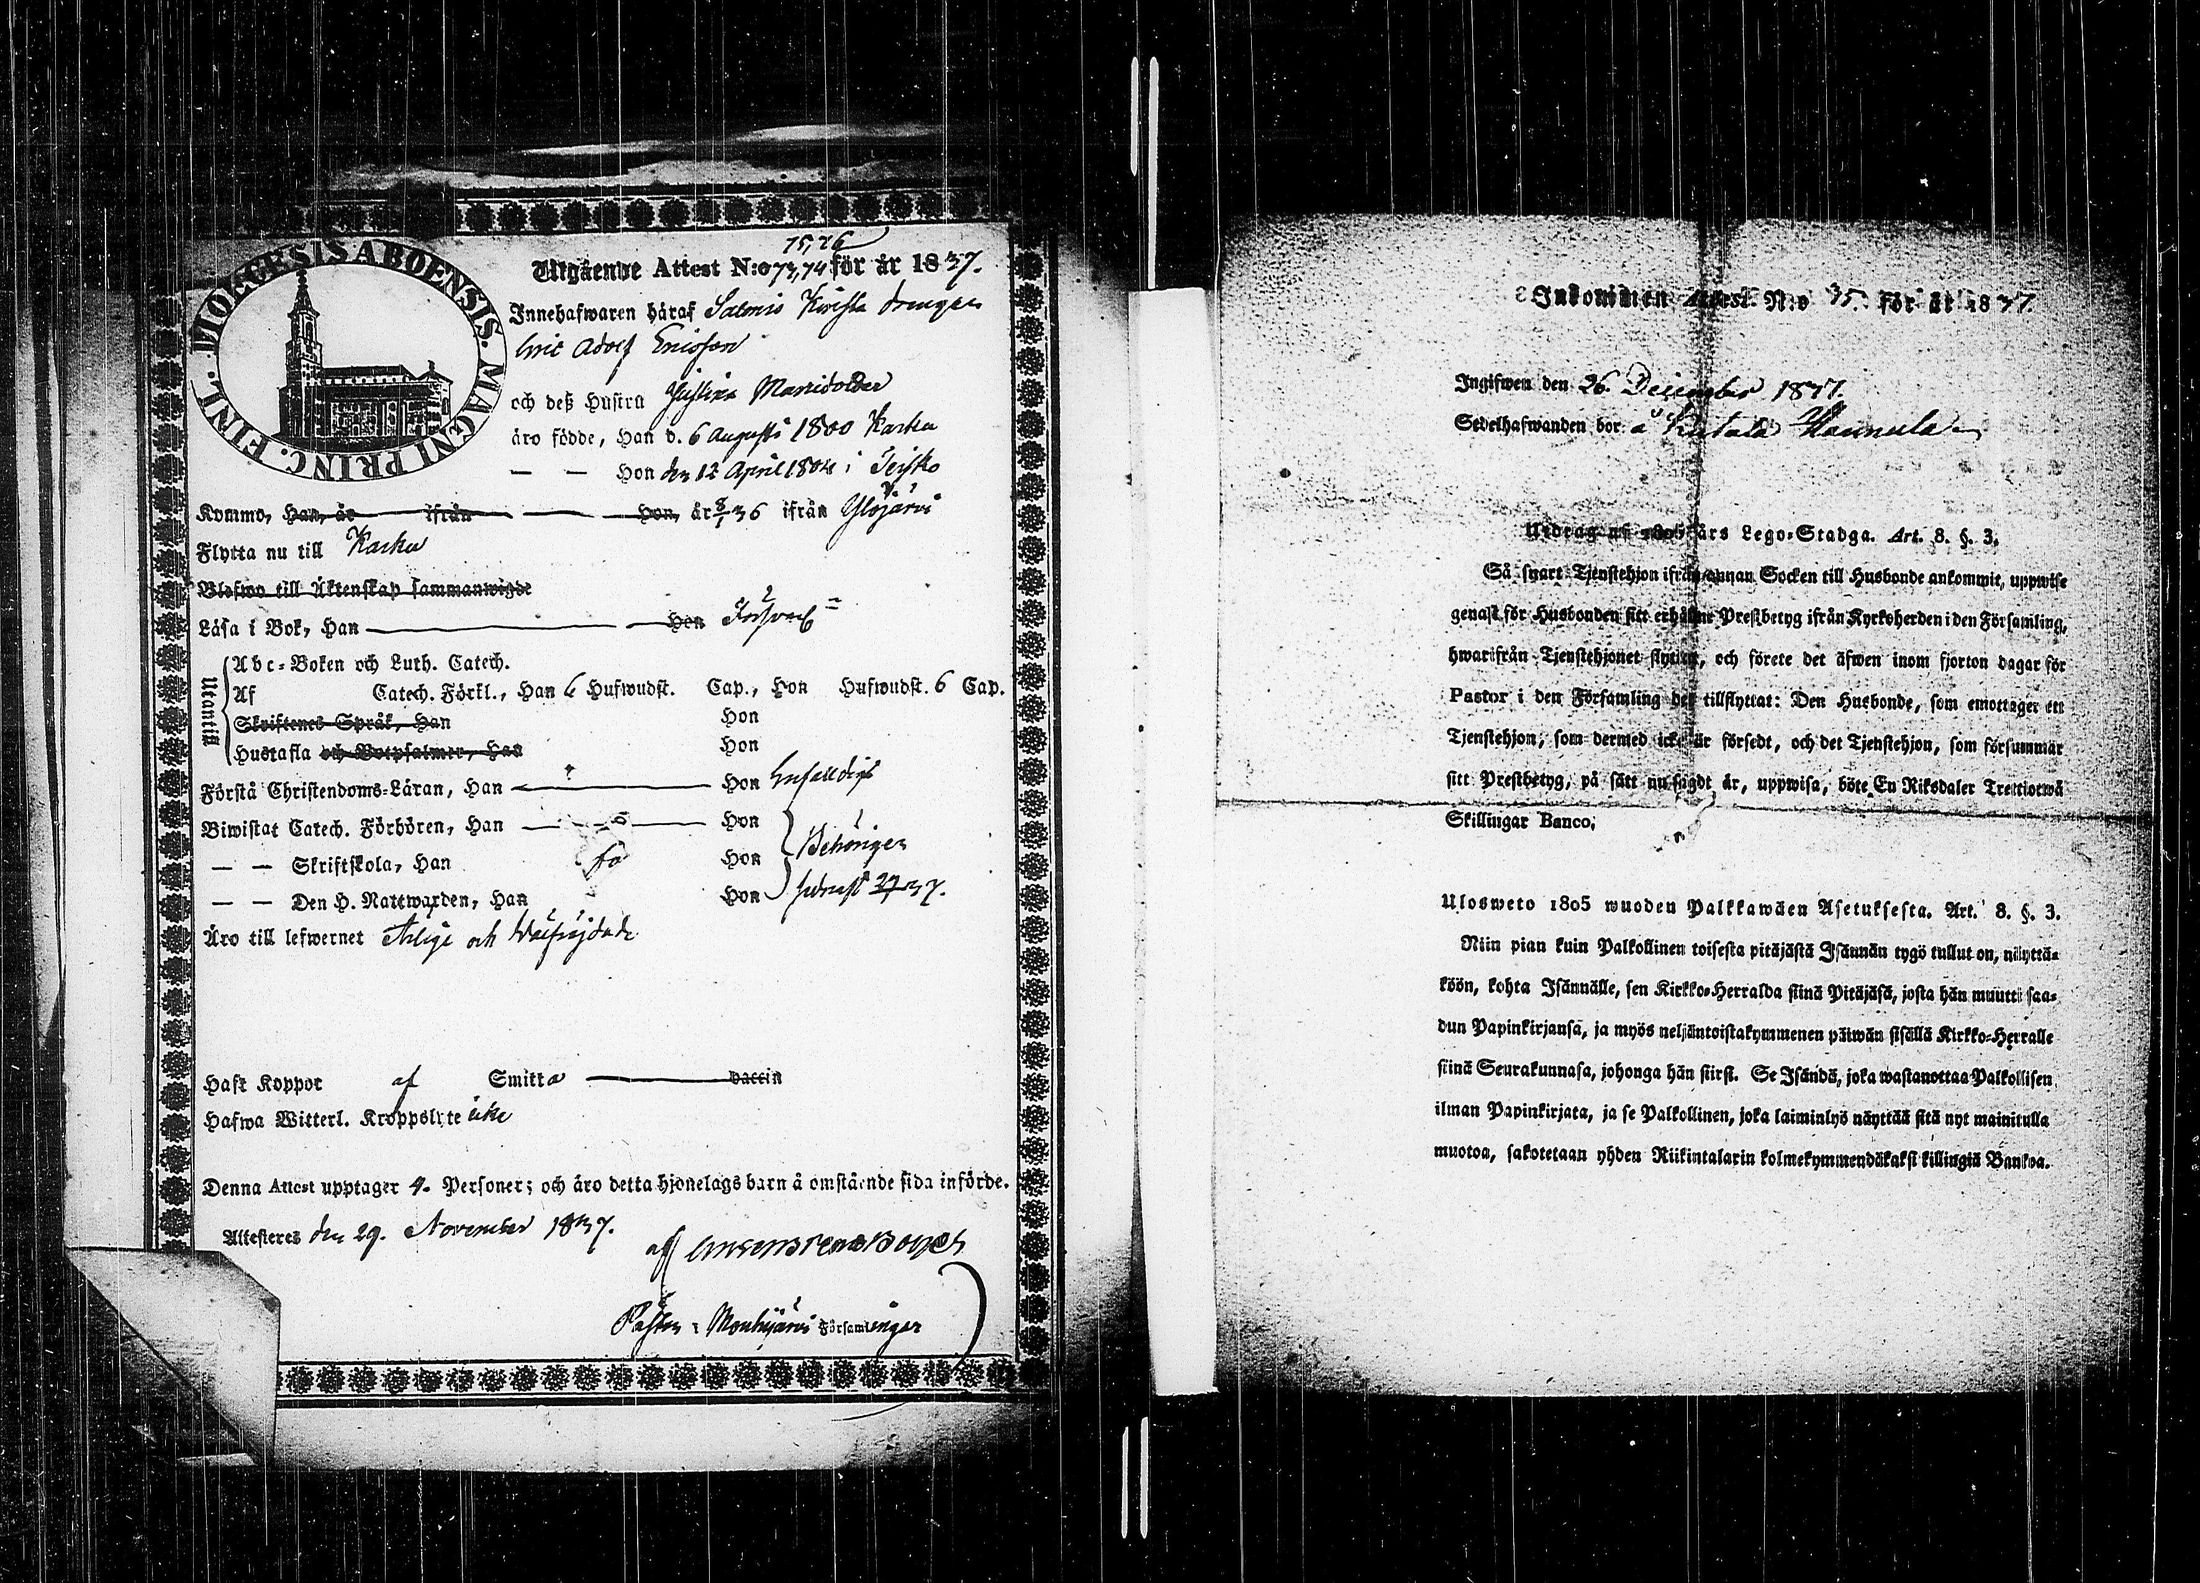 DIOECESIS ABOENSIS. MAGNI PRINC. FINL.
75, 76
Utgående Attest N:o 73, 74 för år 1837.
Innehafwaren häraf Salmis Kwista drängen
Eric Adolf Ericsson
och deß Hustru Justina Mattsdotter
äro födde, Han d. 6 Augusti 1800 Karku
— — Hon den 12 April 1804 i Teisko
Kommo, Han, år ifrån Hon, år 36 ifrån Ylöjärvi
Flytta nu till Karku
Blefwo till Äktenskap sammanwigde
Läsa i Bok, Han Hon Försvarl
Utantill
Abc-Boken och Luth. Catech.
Af Catech. Förkl., Han 6 Hufwudst. Cap., Hon Hufwudst. 6 Cap.
Skriftenes Språk, Han Hon
Hustafla och Botpsalmer, Han Hon
Förstå Christendoms-Läran, Han Hon Enfalldigt
Biwistat Catech. Förhören, Han Hon
— — Skriftskola, Han Hon Behörigen
— — Den H. Nattwarden, Han Hon 37.
Äro till lefwernet Ärlige och Wälfräjdade
Haft Koppor af Smitta vaccin
Hafwa Witterl. Kroppslyte icke
Denna Attest upptager 4. Personer; och äro detta hjonelags barn å omstående sida införde.
Attesteres den 29. November 1837.
af
Pastor i Mouhijärvi Församlingar
Inkommen Attest N:o 35. för år 1837.
Ingifwen den 26. December 1837.
Sedelhafwanden bor å Kutala Hannula
Utdrag af 1805 års Lego-Stadga. Art. 8. §. 3.
Så snart Tjenstehjon ifrån annan Socken till Husbonde ankommit, uppwise
genast för Husbonden sitt erhållne Prestbetyg ifrån Kyrkoherden i den Församling,
hwarifrån Tjenstehjonet flyttat, och förete det äfwen inom fjorton dagar för
Pastor i den Församling det tillflyttat: Den Husbonde, som emottager ett
Tjenstehjon, som dermed icke är försedt, och det Tjenstehjon, som försummar
sitt Prestbetyg, på sätt nu sagdt är, uppwisa, böte En Riksdaler Trettiotwå
Skillingar Banco.
Ulosweto 1805 wuoden Palkkawäen Asetuksesta. Art. 8. §. 3.
Niin pian kuin Palkollinen toisesta pitäjästä Isännän tygö tullut on, näyttä-
köön, kohta Isännälle, sen Kirkko-Herralda siinä Pitäjäsä, josta hän muutti saa-
dun Papinkirjansa, ja myös neljäntoistakymmenen päiwän sisällä Kirkko-Herralle
siinä Seurakunnasa, johonga hän siirsi. Se Isändä, joka wastanottaa Palkollisen
ilman Papinkirjata, ja se Palkollinen, joka laiminlyö näyttää sitä nyt mainitulla
muotoa, sakotetaan yhden Riikintalarin kolmekymmendäkaksi killingiä Bankoa.